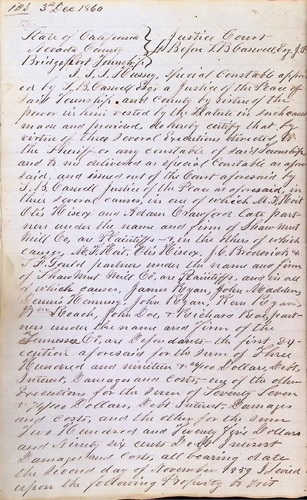 183 3rd Dec 1860
State of California } Justice Court
Nevada County } Before T. B. Caswell Esq J.P.
Bridgeport Township }
I, Hussey, Special Constable appoint
ed by T. B. Caswell Esq, a Justice of the Peace of
said Township and County by virtue of the
power in him vested by the Statute in such cases
made and provided, do hereby certify that by
virtue of three several Executions directed to
the Sheriff or any constable of said Township
and to me delivered as special Constable as afore
said, and issued out of the Court aforesaid by
T. B. Caswell Justice of the Peace as aforesaid, in
three several causes, in one of which M. F. Hoit
Otis Hisey and Adam Crawford late part
ners under the name and firm of Shaw mut
Mill Co, are Plaintiffs & in the others of which
causes, M. F. Hoit, Otis Hisey, J. C. Broderick &
Partners under the name and firm
of Shaw mut Mill Co, are Plaintiffs and in all
of which causes, James Ryan, John Madden,
Dennis Hennessy, John Ryan, Ryan,
Roach, John Doe, & Richard Roe, part
ners under the name and firm of the
Tennessee Co, are Defendants the first Ex
ecution aforesaid for the sum of Three
Hundred and nineteen & Dollars, Debt,
Interest, Damages and Costs, one of the other
Executions for the sum of Seventy Seven
& /100 Dollars, Debt, Interest, Damages
and Costs, and the other for the sum
Two Hundred and Twenty Dollars
and Ninety six cents Debt Interest
Damages and Costs, all bearing date
the Second day of November 1859 I levied
upon the following Property to wit